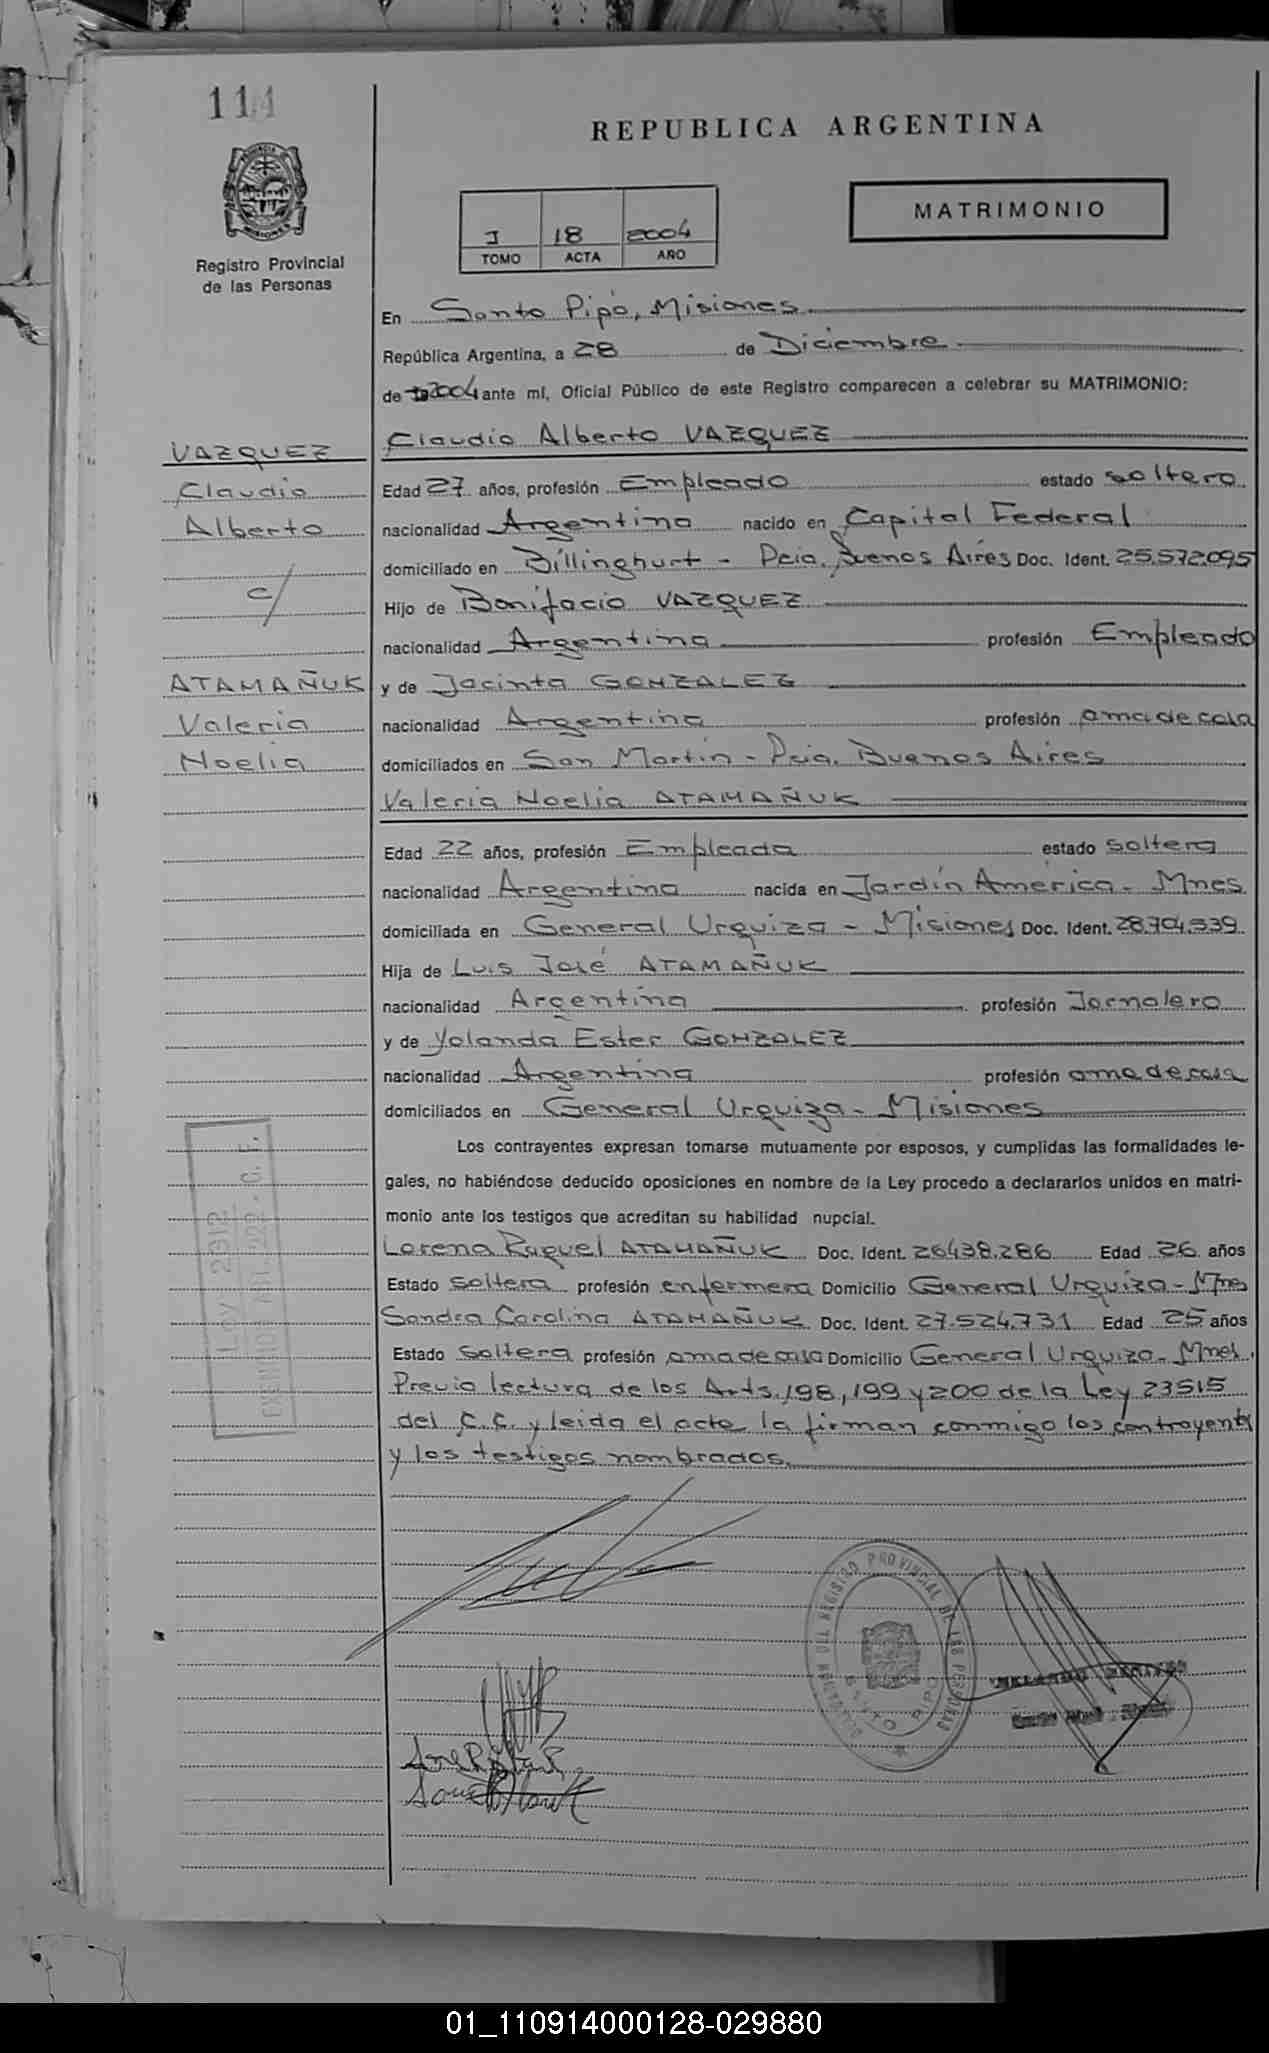 114
REPUBLICA ARGENTINA
MISIONES
Registro Provincial
de las Personas
I 18 2004
TOMO ACTA AÑO
MATRIMONIO
En Santo Pipó, Misiones
República Argentina, a 28 de Diciembre
de 2004 ante mí, Oficial Público de este Registro comparecen a celebrar su MATRIMONIO:
VAZQUEZ
Claudio
Alberto
c/
ATAMAÑUK
Valeria
Noelia
Claudio Alberto VAZQUEZ
Edad 27 años, profesión Empleado estado soltero
nacionalidad Argentina nacido en Capital Federal
domiciliado en Billinghurt - Pcia. Buenos Aires Doc. Ident. 25.572.095
Hijo de Bonifacio VAZQUEZ
nacionalidad Argentina profesión Empleado
y de Jacinta GONZALEZ
nacionalidad Argentina profesión ama de casa
domiciliados en San Martín - Pcia. Buenos Aires
Valeria Noelia ATAMAÑUK
Edad 22 años, profesión Empleada estado soltera
nacionalidad Argentina nacida en Jardín América - Mnes
domiciliada en General Urquiza - Misiones Doc. Ident. 28.704.539
Hija de Luis José ATAMAÑUK
nacionalidad Argentina profesión Jornalero
y de Yolanda Ester GONZALEZ
nacionalidad Argentina profesión ama de casa
domiciliados en General Urquiza - Misiones
Los contrayentes expresan tomarse mutuamente por esposos, y cumplidas las formalidades le-
gales, no habiéndose deducido oposiciones en nombre de la Ley procedo a declararlos unidos en matri-
monio ante los testigos que acreditan su habilidad nupcial.
Lorena Raquel ATAMAÑUK Doc. Ident. 26.438.286 Edad 26 años
Estado soltera profesión enfermera Domicilio General Urquiza - Mnes
Sandra Carolina ATAMAÑUK Doc. Ident. 27.524.731 Edad 25 años
Estado soltera profesión ama de casa Domicilio General Urquiza - Mnes.
Previa lectura de los Arts. 198, 199 y 200 de la Ley 23515
del C.C. y leida el acta la firman conmigo los contrayentes
y los testigos nombrados.
NOV 2012
DEL REGISTRO PROVINCIAL DE LAS PERSONAS
SANTO PIPO
01_110914000128-029880